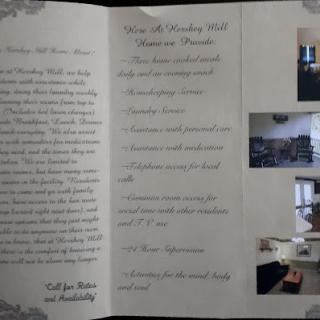 Hershey Mill Home About?
at Hershey Mill, we help
with assistance while
doing their laundry weekly
their rooms from top to
(Includes bed linen changes)
Breakfast, Lunch, Dinner
everyday. We also assist
with reminders for medications
they need, and the times they are
taken. We are limited to
rooms, but have many
rooms in the facility. Residents
to come and go with family
have access to the
right next door), and
options that they just might
to do anymore on their own.
to know, that at Hershey Mill
there is the comfort of knowing
will not be alone any longer.
"Call for Rates
and Availability"
Here At Hershey Mill
Home we Provide:
~Three home cooked meals
daily and an evening snack
~Housekeeping Service
~Laundry Service
~Assistance with personal care
~Assistance with medication
~Telephone access for local
calls
~Common room access for
social time with other residents
and T.V. use
~24 Hour Supervision
~Activities for the mind, body
and soul